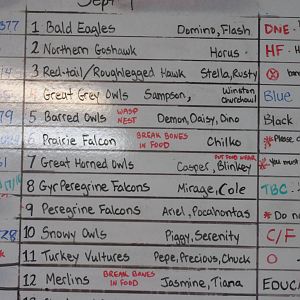 Sept
377 1 Bald Eagles Domino, Flash DNE
2 Northern Goshawk Horus HF
3 Red-tail/Roughlegged Hawk Stella, Rusty
4 Great Grey Owls Sampson, Winston Churchowl Blue
79 5 Barred Owls WASP NEST Demon, Daisy, Dino Black
6 Prairie Falcon BREAK BONES IN FOOD Chilko Please
7 Great Horned Owls Casper, Blinkey PUT FOOD NEAR you must
8 Gyr Peregrine Falcons Mirage, Cole TBC
9 Peregrine Falcons Ariel, Pocahontas Do n
10 Snowy Owls Piggy, Serenity C/F
11 Turkey Vultures Pepe, Precious, Chuck O
12 Merlins BREAK BONES IN FOOD Jasmine, Tiana EDUC